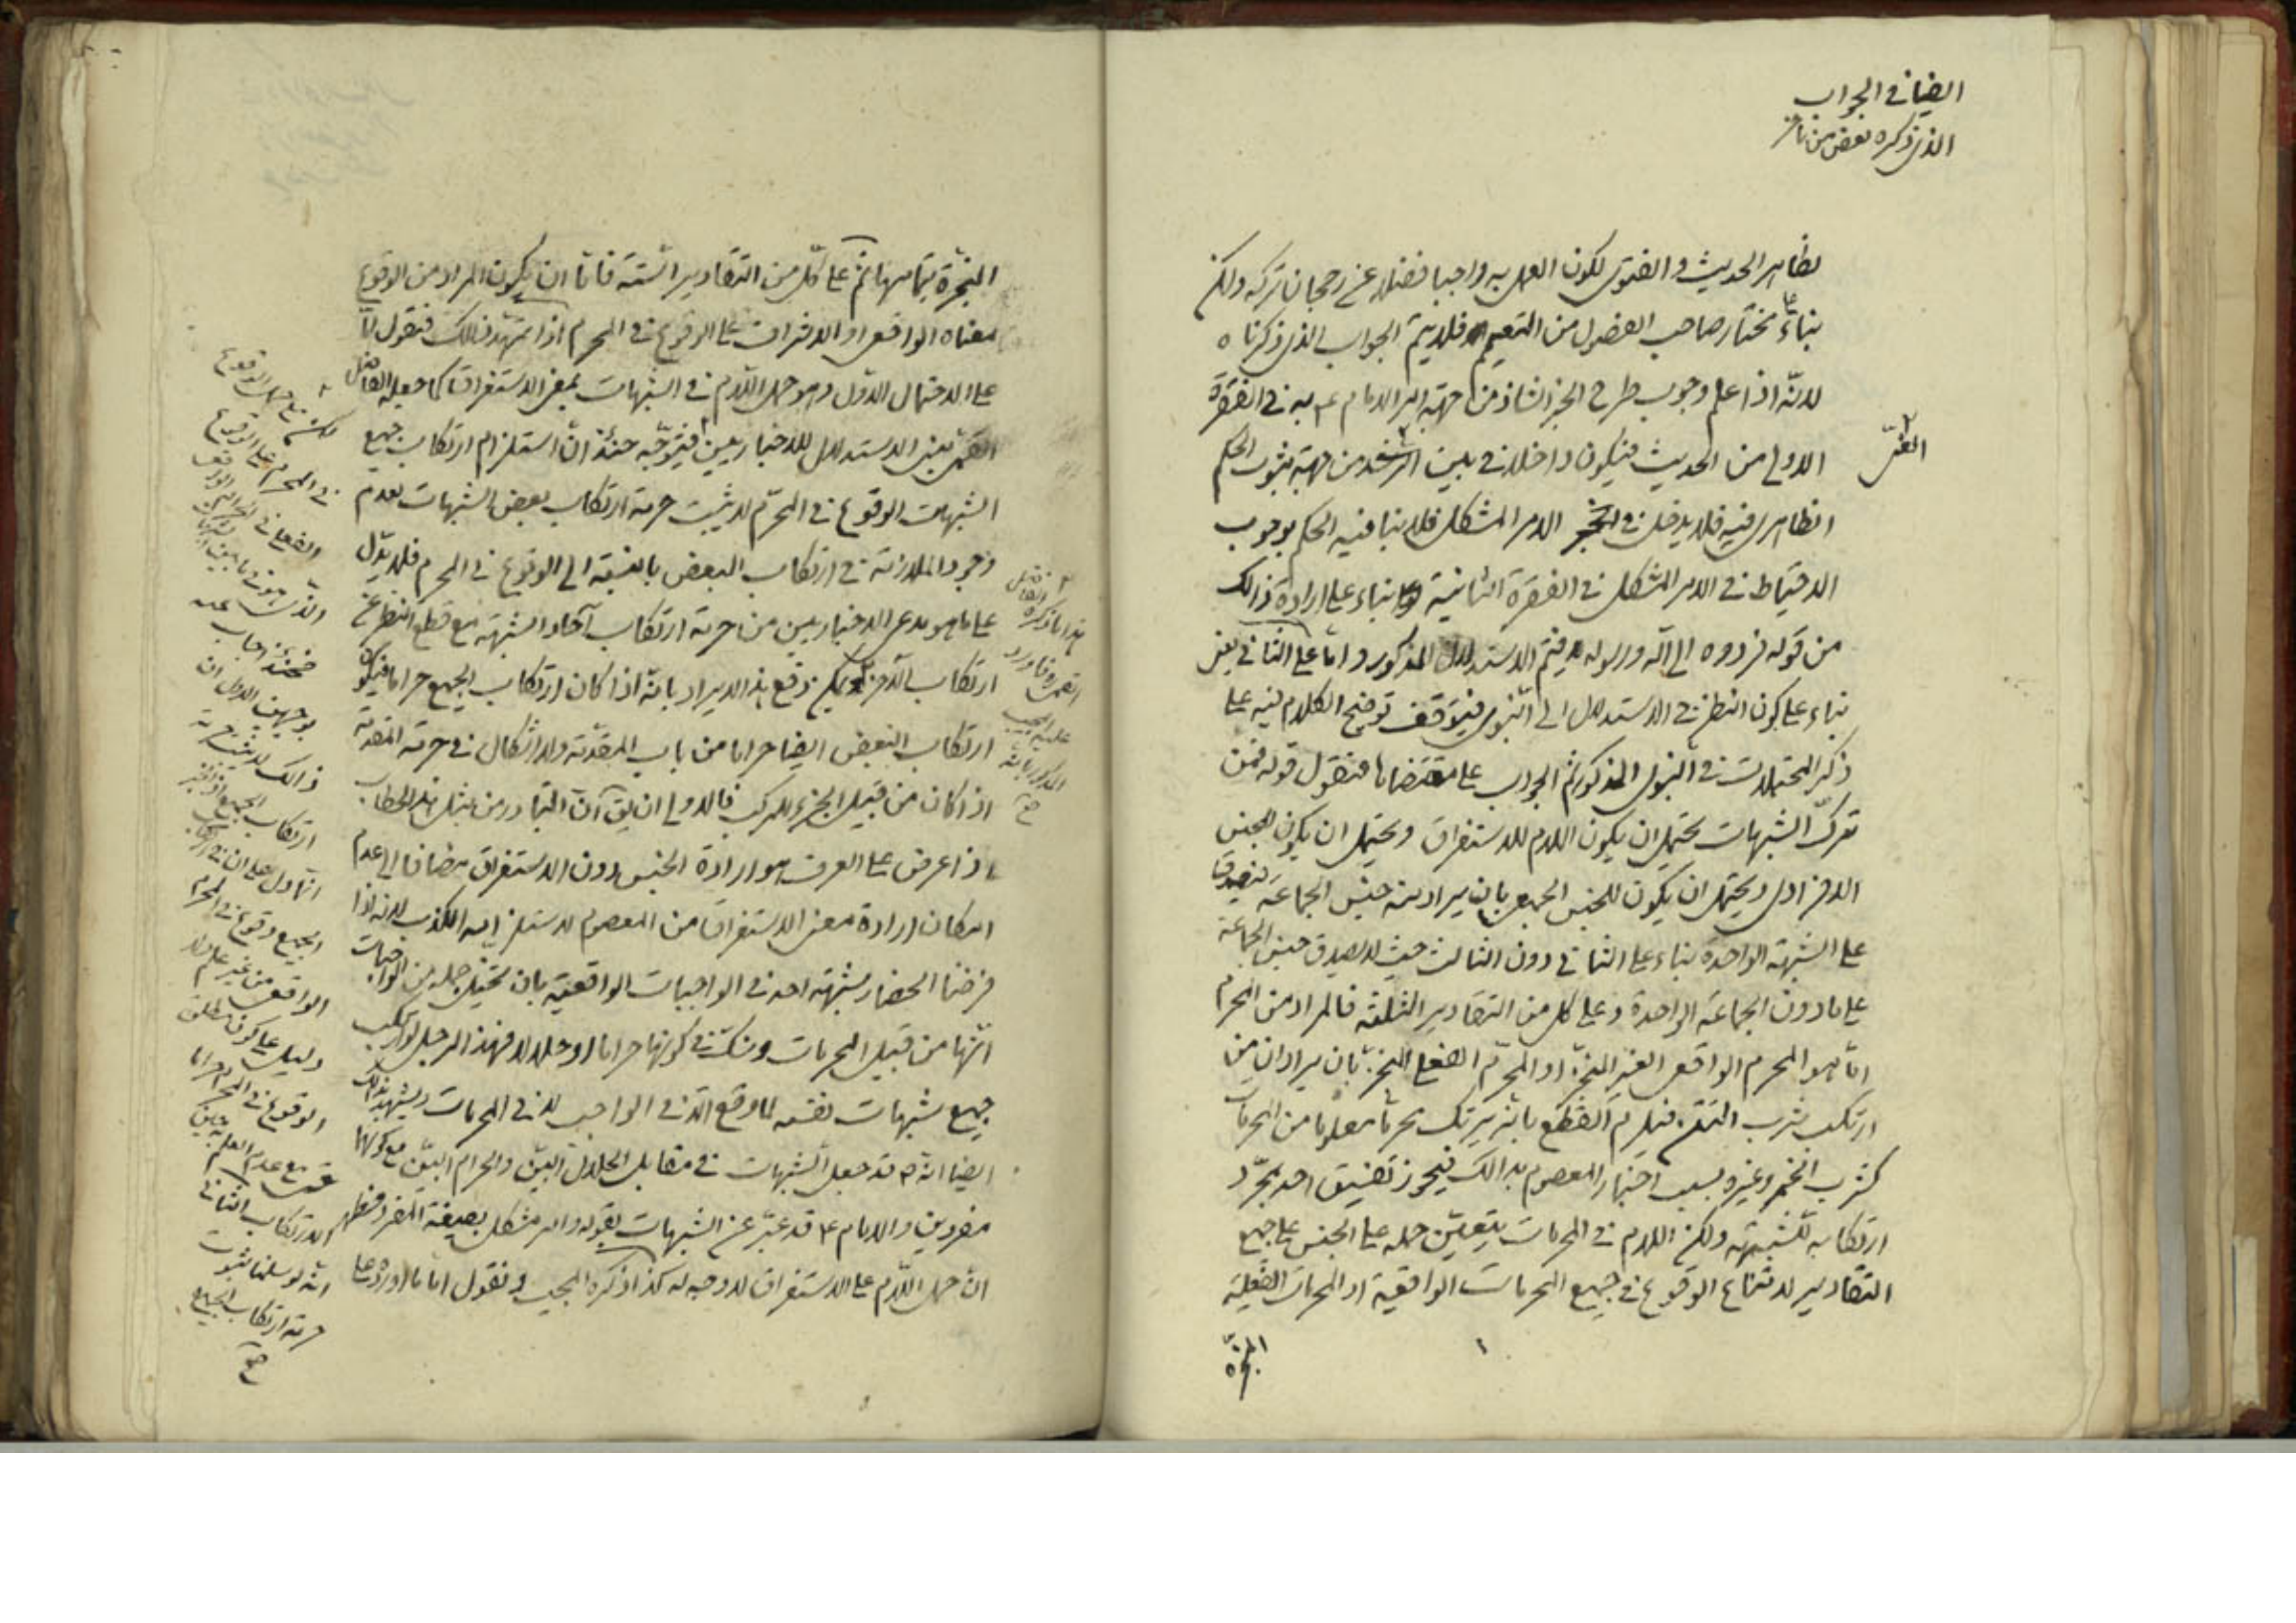 ايضا في الجواب
الذي ذكره بعض من تأخر
بظاهر الحديث والفتوى لكون العمل به واجبا فضلا عن رجحان تركه ولكن
بناء على مختار صاحب الفصول من التعميم فلا يتم الجواب الذي ذكرناه
لانه اذا علم وجوب طرح الخبر الشاذ من جهة امر الامام ع به في الفقرة
الاولى من الحديث فيكون داخلا في بين الرشد من جهة ثبوت الحكم
الظاهري فيه فلا يدخل في الامر المشكل فلا ينافيه الحكم بوجوب
الاحتياط في الامر المشكل في الفقرة الثانية بناء على ارادة ذالك
من قوله فردوه الى الله ورسوله فيتم الاستدلال المذكور واما على الثاني يعني
بناء على كون النظر في الاستدلال الى النبوي فيتوقف توضيح الكلام فيه على
ذكر المحتملات في النبوي المذكور ثم الجواب على مقتضاها فنقول قوله فمن
ترك الشبهات يحتمل ان يكون اللام للاستغراق ويحتمل ان يكون للجنس
الافرادي ويحتمل ان يكون للجنس الجمعي بان يراد منه جنس الجماعة فيصدق
على الشبهة الواحدة بناء على الثاني دون الثالث حيث لا يصدق جنس الجماعة
على ما دون الجماعة الواحدة وعلى كل من التقادير الثلثة فالمراد من المحرم
اما هو المحرم الواقعي الغير المنجز او المحرم الفعلي المنجز بان يراد ان من
ارتكب شرب التتن فيلزم القطع بانه يرتكب محرما معلوما من المحرمات
كشرب الخمر وغيره بسبب اخبار المعصوم بذالك فيجوز تفسيق احد بمجرد
ارتكابه للشبهة ولكن اللام في المحرمات يتعين حمله على الجنس على جميع
التقادير لامتناع الوقوع في جميع المحرمات الواقعية او المحرمات الفعلية
المنجزة
المنجزة بتمامها ثم على كل من التقادير الستة فاما ان يكون المراد من الوقوع
معناه الواقعي او الاشراف على الوقوع في المحرم اذا تمهد ذالك فنقول اما
على الاحتمال الاول وهو حمل اللام في الشبهات بمعنى الاستغراق كما جعله الفاضل
القمي مبنى الاستدلال للاخباريين فيتوجه حينئذ ان استلزام ارتكاب جميع
الشبهات الوقوع في المحرم لا يثبت حرمة ارتكاب بعض الشبهات لعدم
وجود الملازمة في ارتكاب البعض بالنسبة الى الوقوع في المحرم فلا يدل
على ما هو مدعى الاخباريين من حرمة ارتكاب آحاد الشبهة مع قطع النظر عن
ارتكاب الآخر ويمكن دفع هذا الايراد بانه اذا كان ارتكاب الجميع حراما فيكون
ارتكاب البعض ايضا حراما من باب المقدمة ولا اشكال في حرمة المقدمة
اذا كان من قبيل الجزء للمركب فالاولى ان يق آن المتبادر من مثل هذا الخطاب
اذا عرض على العرف هو ارادة الجنس دون الاستغراق مضافا الى عدم
امكان ارادة معنى الاستغراق من المعصوم لاستلزامه الكذب لانه اذا
فرضنا انحصار شبهة احد في الواجبات الواقعية بان تخيل جملة من الواجبات
انها من قبيل المحرمات وشك في كونها حراما او حلالا فهذا الرجل لو ارتكب
جميع شبهات نفسه لما وقع الا في الواجب لا في المحرمات ويشهد بذالك
ايضا انه ع قد جعل الشبهات في مقابل الحلال البين والحرام البين مع كونهما
مفردين والامام ع قد عبر عن الشبهات بقوله وامر مشكل بصيغة المفرد فظهر
ان حمل اللام على الاستغراق لا وجه له كذا ذكره المجيب ونقول اما ما اورده على
هذا ما ذكره الفاضل
القمي ره واورد
عليه المجيب
المذكور بانه
صح
لكن مع حمل الوقوع
في المحرم على الوقوع
بوجهين الاول ان
ذالك لا يثبت حرمة
ارتكاب الجميع
الجميع وقوع في المحرم
الواقعي من غير علم ولا
دليل على كون مطلق
الوقوع في المحرم حراما
حتى مع عدم العلم حين
الارتكاب الثاني
انه لو سلمنا ثبوت
حرمة ارتكاب الجميع
صح